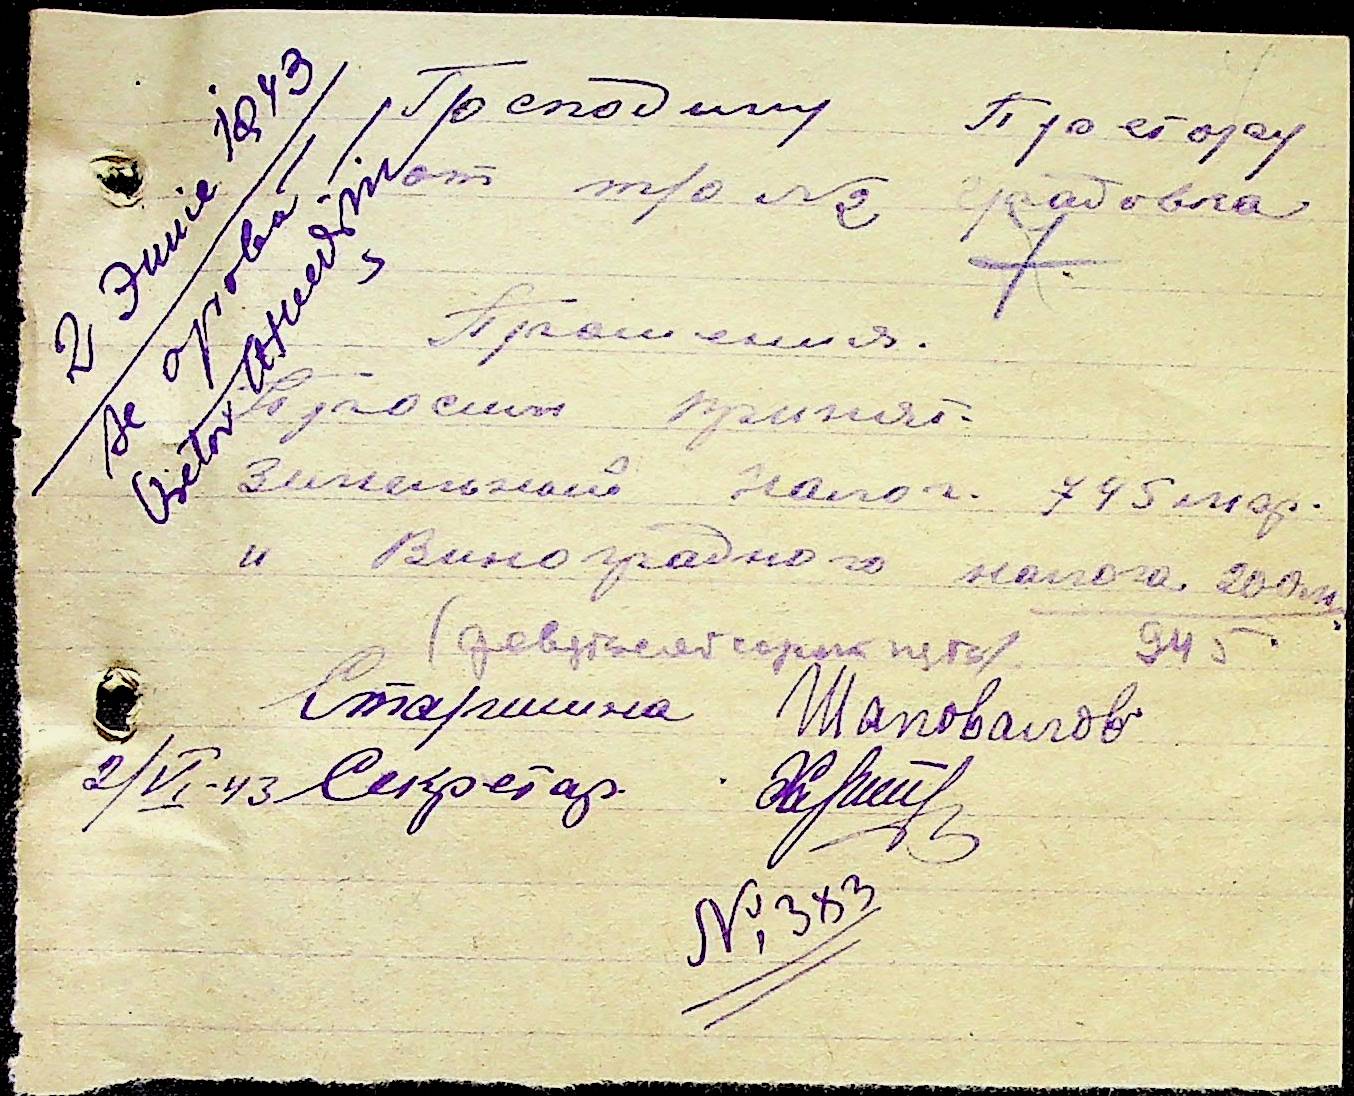 2 Iunie 1943
se aprobă
Господину Претору
от тро №2 Градовка
Прошения.
Просим принят
Зимельный налог. 745 мар.
и Виноградного налога 200 м.
(девятьсот сорок пять) 945
Старшина Шаповалов
2/VI-43 Секретар
№ 383